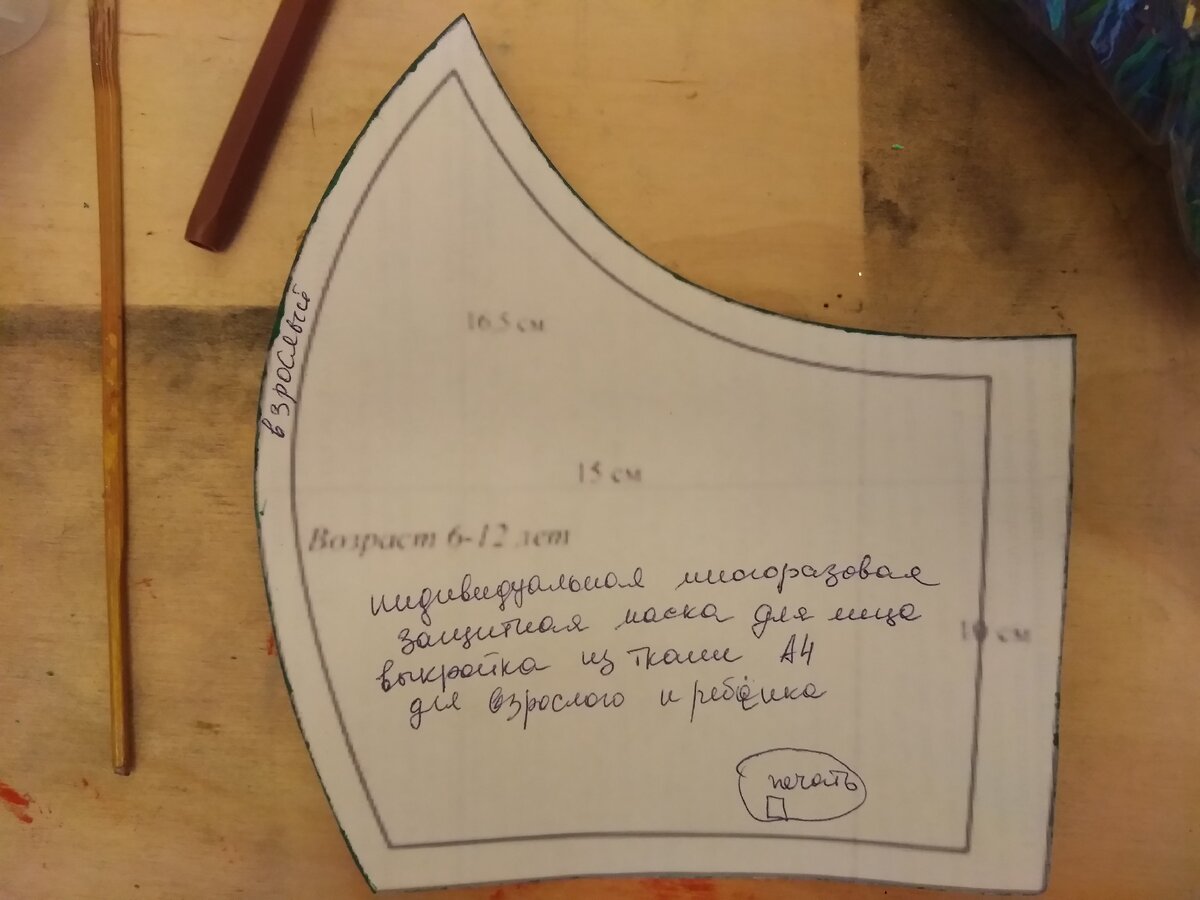 взрослый
16,5 см
15 см
Возраст 6-12 лет
индивидуальная многоразовая
защитная маска для лица
10 см
выкройка из ткани А4
для взрослого и ребёнка
печать